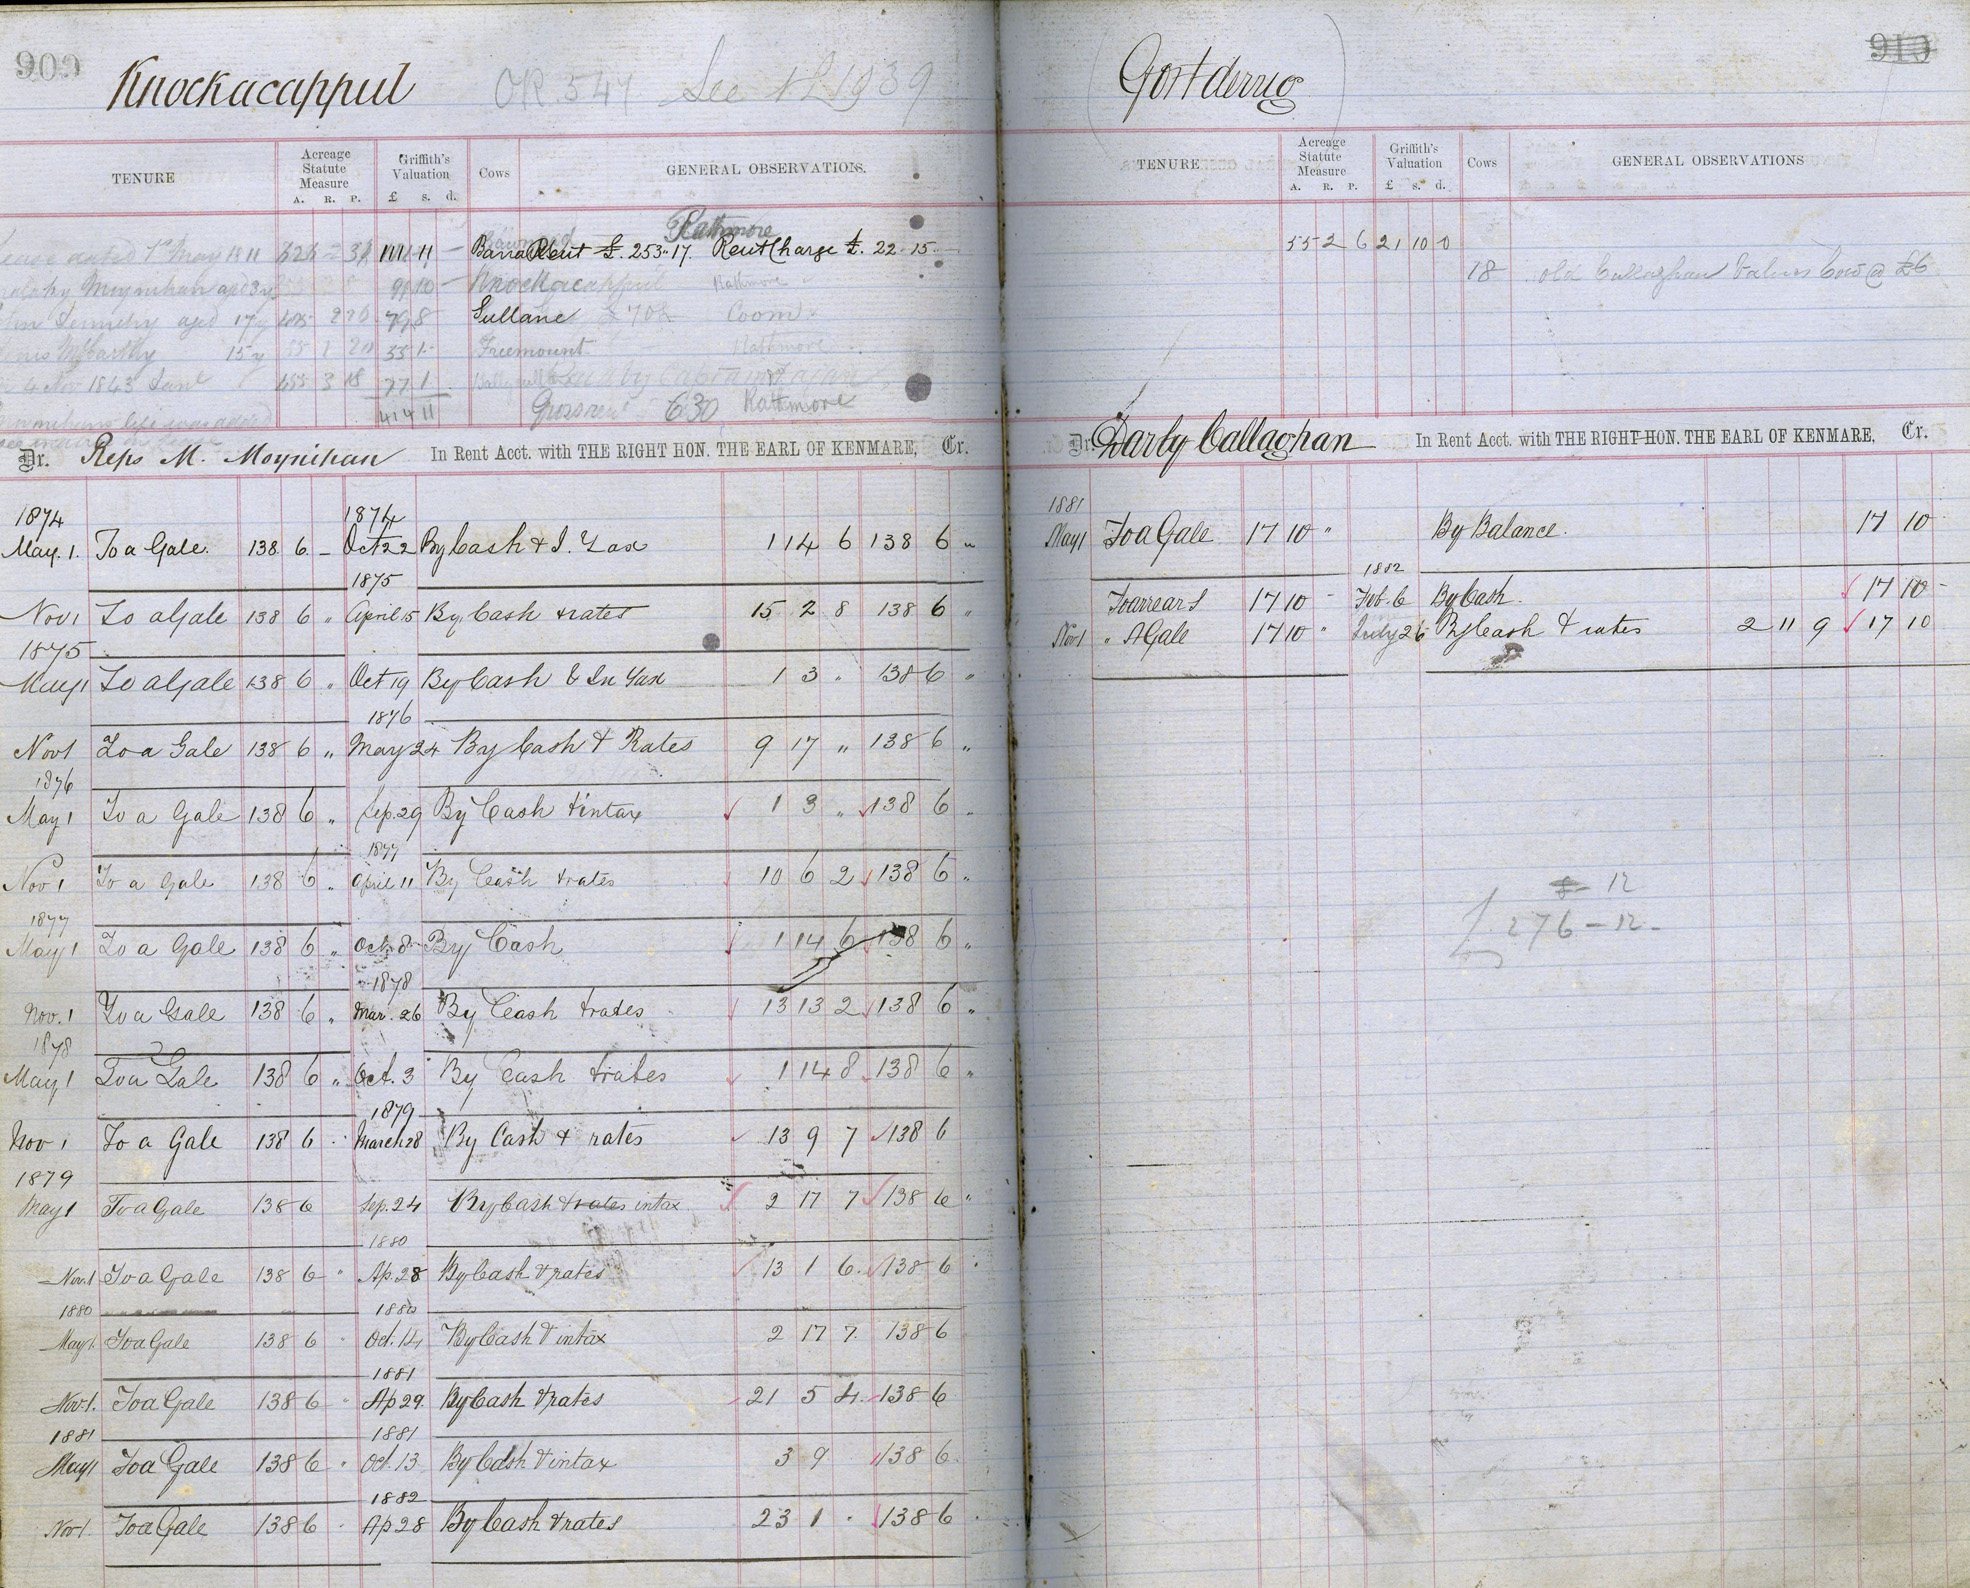 909
Knockacappul OR. 547 See
TENURE Acreage Statute Measure A. R. P. Griffith's Valuation £ s. d. Cows GENERAL OBSERVATIONS.
Rathmore
Lease dated 1st May 1811 111 11 - Rent £. 253.. 17. Rent Charge £. 22. 15.
Moynihan aged 91 10 - Knockacappul Rathmore
aged 17 y 79 8 Sullane Coom
McCarthy 15 y 55 1 20 55 1 - Freemount Rathmore
Nov 1843 455 3 18 77 1
414 11 630 Rathmore
Dr. Reps M. Moynihan In Rent Acct. with THE RIGHT HON. THE EARL OF KENMARE, Cr.
1874 1874
May. 1. To a Gale. 138 6 - Oct 22 By Cash & I. Tax 1 14 6 138 6 "
1875
Nov 1 To a Gale 138 6 " April 5 By Cash & rates 15 2 8 138 6 "
1875
May 1 To a Gale 138 6 " Oct 19 By Cash & In Tax 1 3 " 138 6 "
1876
Nov 1 To a Gale 138 6 " May 24 By Cash & Rates 9 17 " 138 6 "
1876
May 1 To a Gale 138 6 " Sep. 29 By Cash & intax 1 3 " 138 6 "
1877
Nov 1 To a Gale 138 6 " April 11 By Cash & rates 10 6 2 138 6 "
1877
May 1 To a Gale 138 6 " Oct. 8 By Cash 1 14 6 138 6 "
1878
Nov. 1 To a Gale 138 6 " Mar. 26 By Cash & rates 13 13 2 138 6 "
1878
May 1 To a Gale 138 6 " Oct. 3 By Cash & rates 1 14 8 138 6 "
1879
Nov 1 To a Gale 138 6 . March 28 By Cash & rates 13 9 7 138 6
1879
May 1 To a Gale 138 6 Sep. 24 By Cash & rates intax 2 17 7 138 6 "
1880
Nov. 1 To a Gale 138 6 " Ap. 28 By Cash & rates 13 1 6. 138 6 "
1880 1880
May 1. To a Gale 138 6 . Oct. 14 By Cash & intax 2 17 7. 138 6
1881
Nov 1. To a Gale 138 6 . Ap 29. By Cash & rates 21 5 4. 138 6
1881 1881
May 1 To a Gale 138 6 . Oct. 13 By Cash & intax 3 9 138 6.
1882
Nov 1. To a Gale 138 6 . Ap 28 By Cash & rates 23 1 . 138 6 .
910
Gortderrig
TENURE Acreage Statute Measure A. R. P. Griffith's Valuation £ s. d. Cows GENERAL OBSERVATIONS
55 2 6 21 10 0
18 old Callaghan Values Cow @ £6
Dr. Darby Callaghan In Rent Acct. with THE RIGHT HON. THE EARL OF KENMARE, Cr.
1881
May 1 To a Gale 17 10 " By Balance. 17 10
1882
To arrears 17 10 - Feb. 6 By Cash. 17 10 -
Nov 1 " A Gale 17 10 " July 26 By Cash & rates 2 11 9 17 10
8 - 12
276 - 12 -